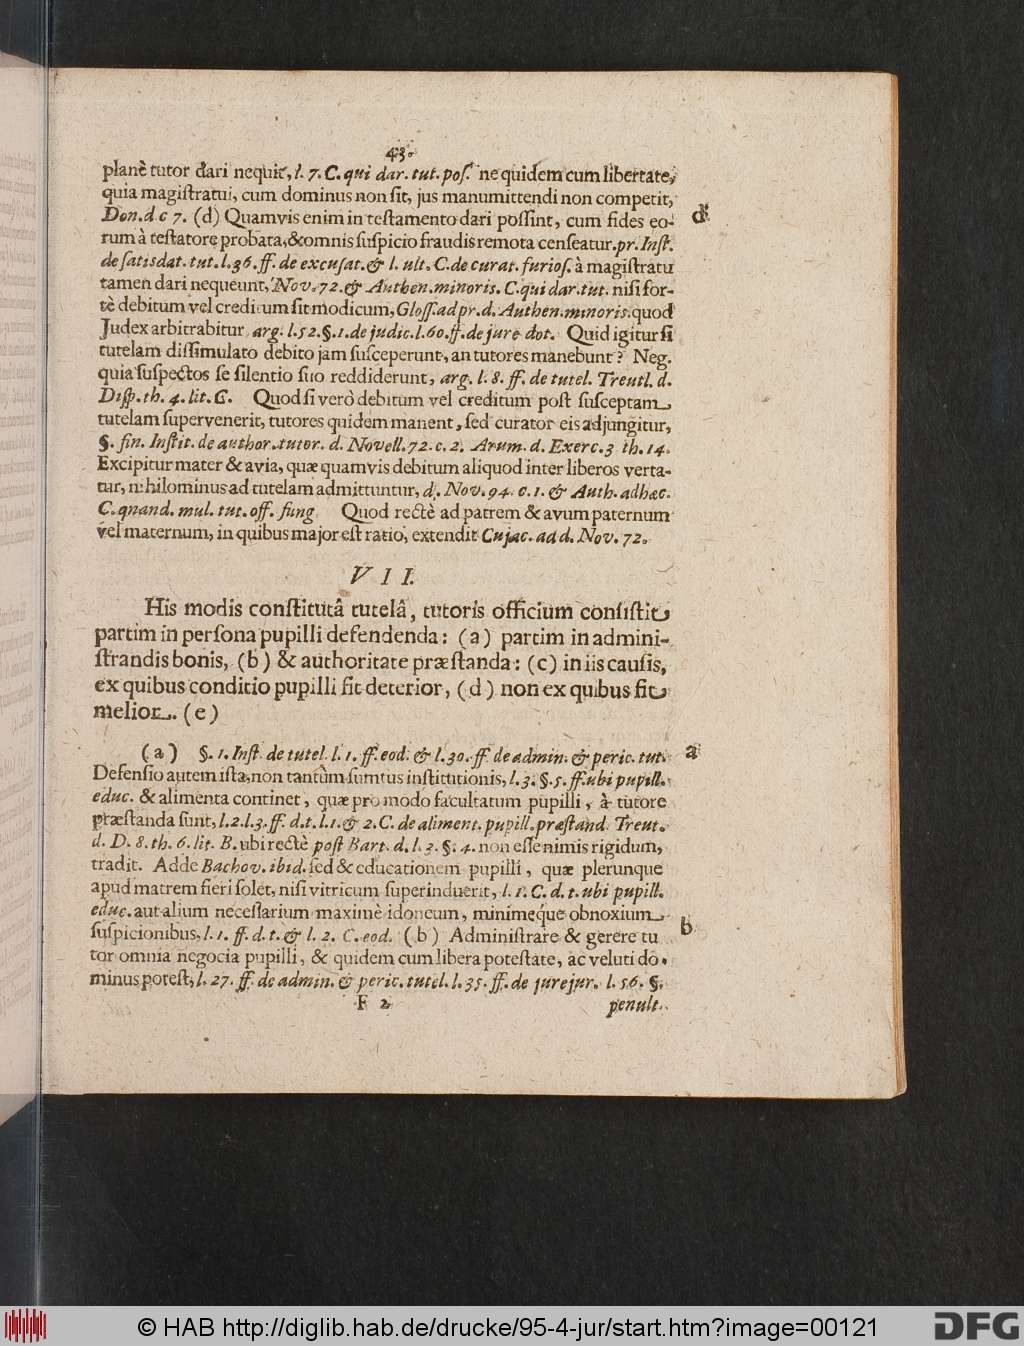 43.
planè tutor dari nequit, l. 7. C. qui dar. tut. pos. ne quidem cum libertate,
quia magiſtratui, cum dominus non ſit, jus manumittendi non competit,
Don. d c 7. (d) Quamvis enim in teſtamento dari poſſint, cum fides eo-
d
rum à teſtatore probata, &omnis ſuſpicio fraudis remota cenſeatur. pr. Inſt.
de ſatisdat. tut. l. 36. ff. de excuſat. & l. ult. C. de curat. furioſ. à magiſtratu
tamen dari nequeunt, Nov. 72. & Authen. minoris. C. qui dar. tut. niſi for-
tè debitum vel creditum ſit modicum, Gloſſ. ad pr. d. Authen. minoris. quod
Judex arbitrabitur arg. l. 52. §. 1. de judic. l. 60. ff. de jure dot. Quid igitur ſi
tutelam diſſimulato debito jam ſuſceperunt, an tutores manebunt? Neg.
quia ſuſpectos ſe ſilentio ſuo reddiderunt, arg. l. 8. ff. de tutel. Treutl. d.
Diſp. th. 4. lit. C. Quod ſi verò debitum vel creditum poſt ſuſceptam
tutelam ſupervenerit, tutores quidem manent, ſed curator eis adjungitur,
§. fin. Inſtit. de author. tutor. d. Novell. 72. c. 2. Arum. d. Exerc. 3 th. 14.
Excipitur mater & avia, quæ quamvis debitum aliquod inter liberos verta-
tur, nihilominus ad tutelam admittuntur, d. Nov. 94. c. 1. & Auth. adhæc.
C. quand. mul. tut. off. fung. Quod rectè ad patrem & avum paternum
vel maternum, in quibus major eſt ratio, extendit Cujac. ad d. Nov. 72.
VII.
His modis conſtitutâ tutelâ, tutoris officium conſiſtit
partim in perſona pupilli defendenda: (a) partim in admini-
ſtrandis bonis, (b) & authoritate præſtanda: (c) in iis cauſis,
ex quibus conditio pupilli fit deterior, (d) non ex quibus fit
melior. (e)
(a) §. 1. Inſt. de tutel. l. 1. ff. eod. & l. 30. ff. de admin. & peric. tut.
a
Defenſio autem iſta, non tantùm ſumtus inſtitutionis, l. 3. §. 5. ff. ubi pupill.
educ. & alimenta continet, quæ pro modo facultatum pupilli, à tutore
præſtanda ſunt, l. 2. l. 3. ff. d. t. l. 1. & 2. C. de aliment. pupill. præſtand. Treut.
d. D. 8. th. 6. lit. B. ubi rectè poſt Bart. d. l. 3. §. 4. non eſſe nimis rigidum,
tradit. Adde Bachov. ibid. ſed & educationem pupilli, quæ plerunque
apud matrem fieri ſolet, niſi vitricum ſuperinduerit, l. 1. C. d. t. ubi pupill.
educ. aut alium neceſſarium maximè idoneum, minimeque obnoxium
b
ſuſpicionibus, l. 1. ff. d. t. & l. 2. C. eod. (b) Adminiſtrare & gerere tu
tor omnia negocia pupilli, & quidem cum libera poteſtate, ac veluti do.
minus poteſt, l. 27. ff. de admin. & peric. tutel. l. 35. ff. de jurejur. l. 56. §.
F 2
penult.
© HAB http://diglib.hab.de/drucke/95-4-jur/start.htm?image=00121
DFG